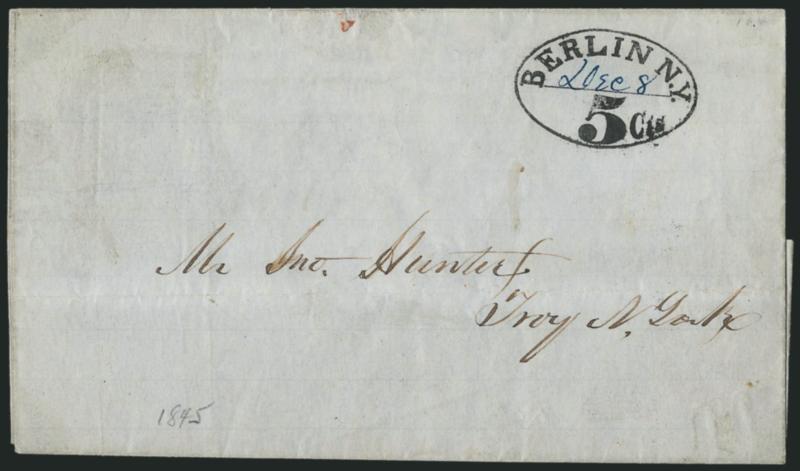 BERLIN N.Y.
Dec 8
5 Cts
Mr Jno. Hunter
Troy N. York
1845